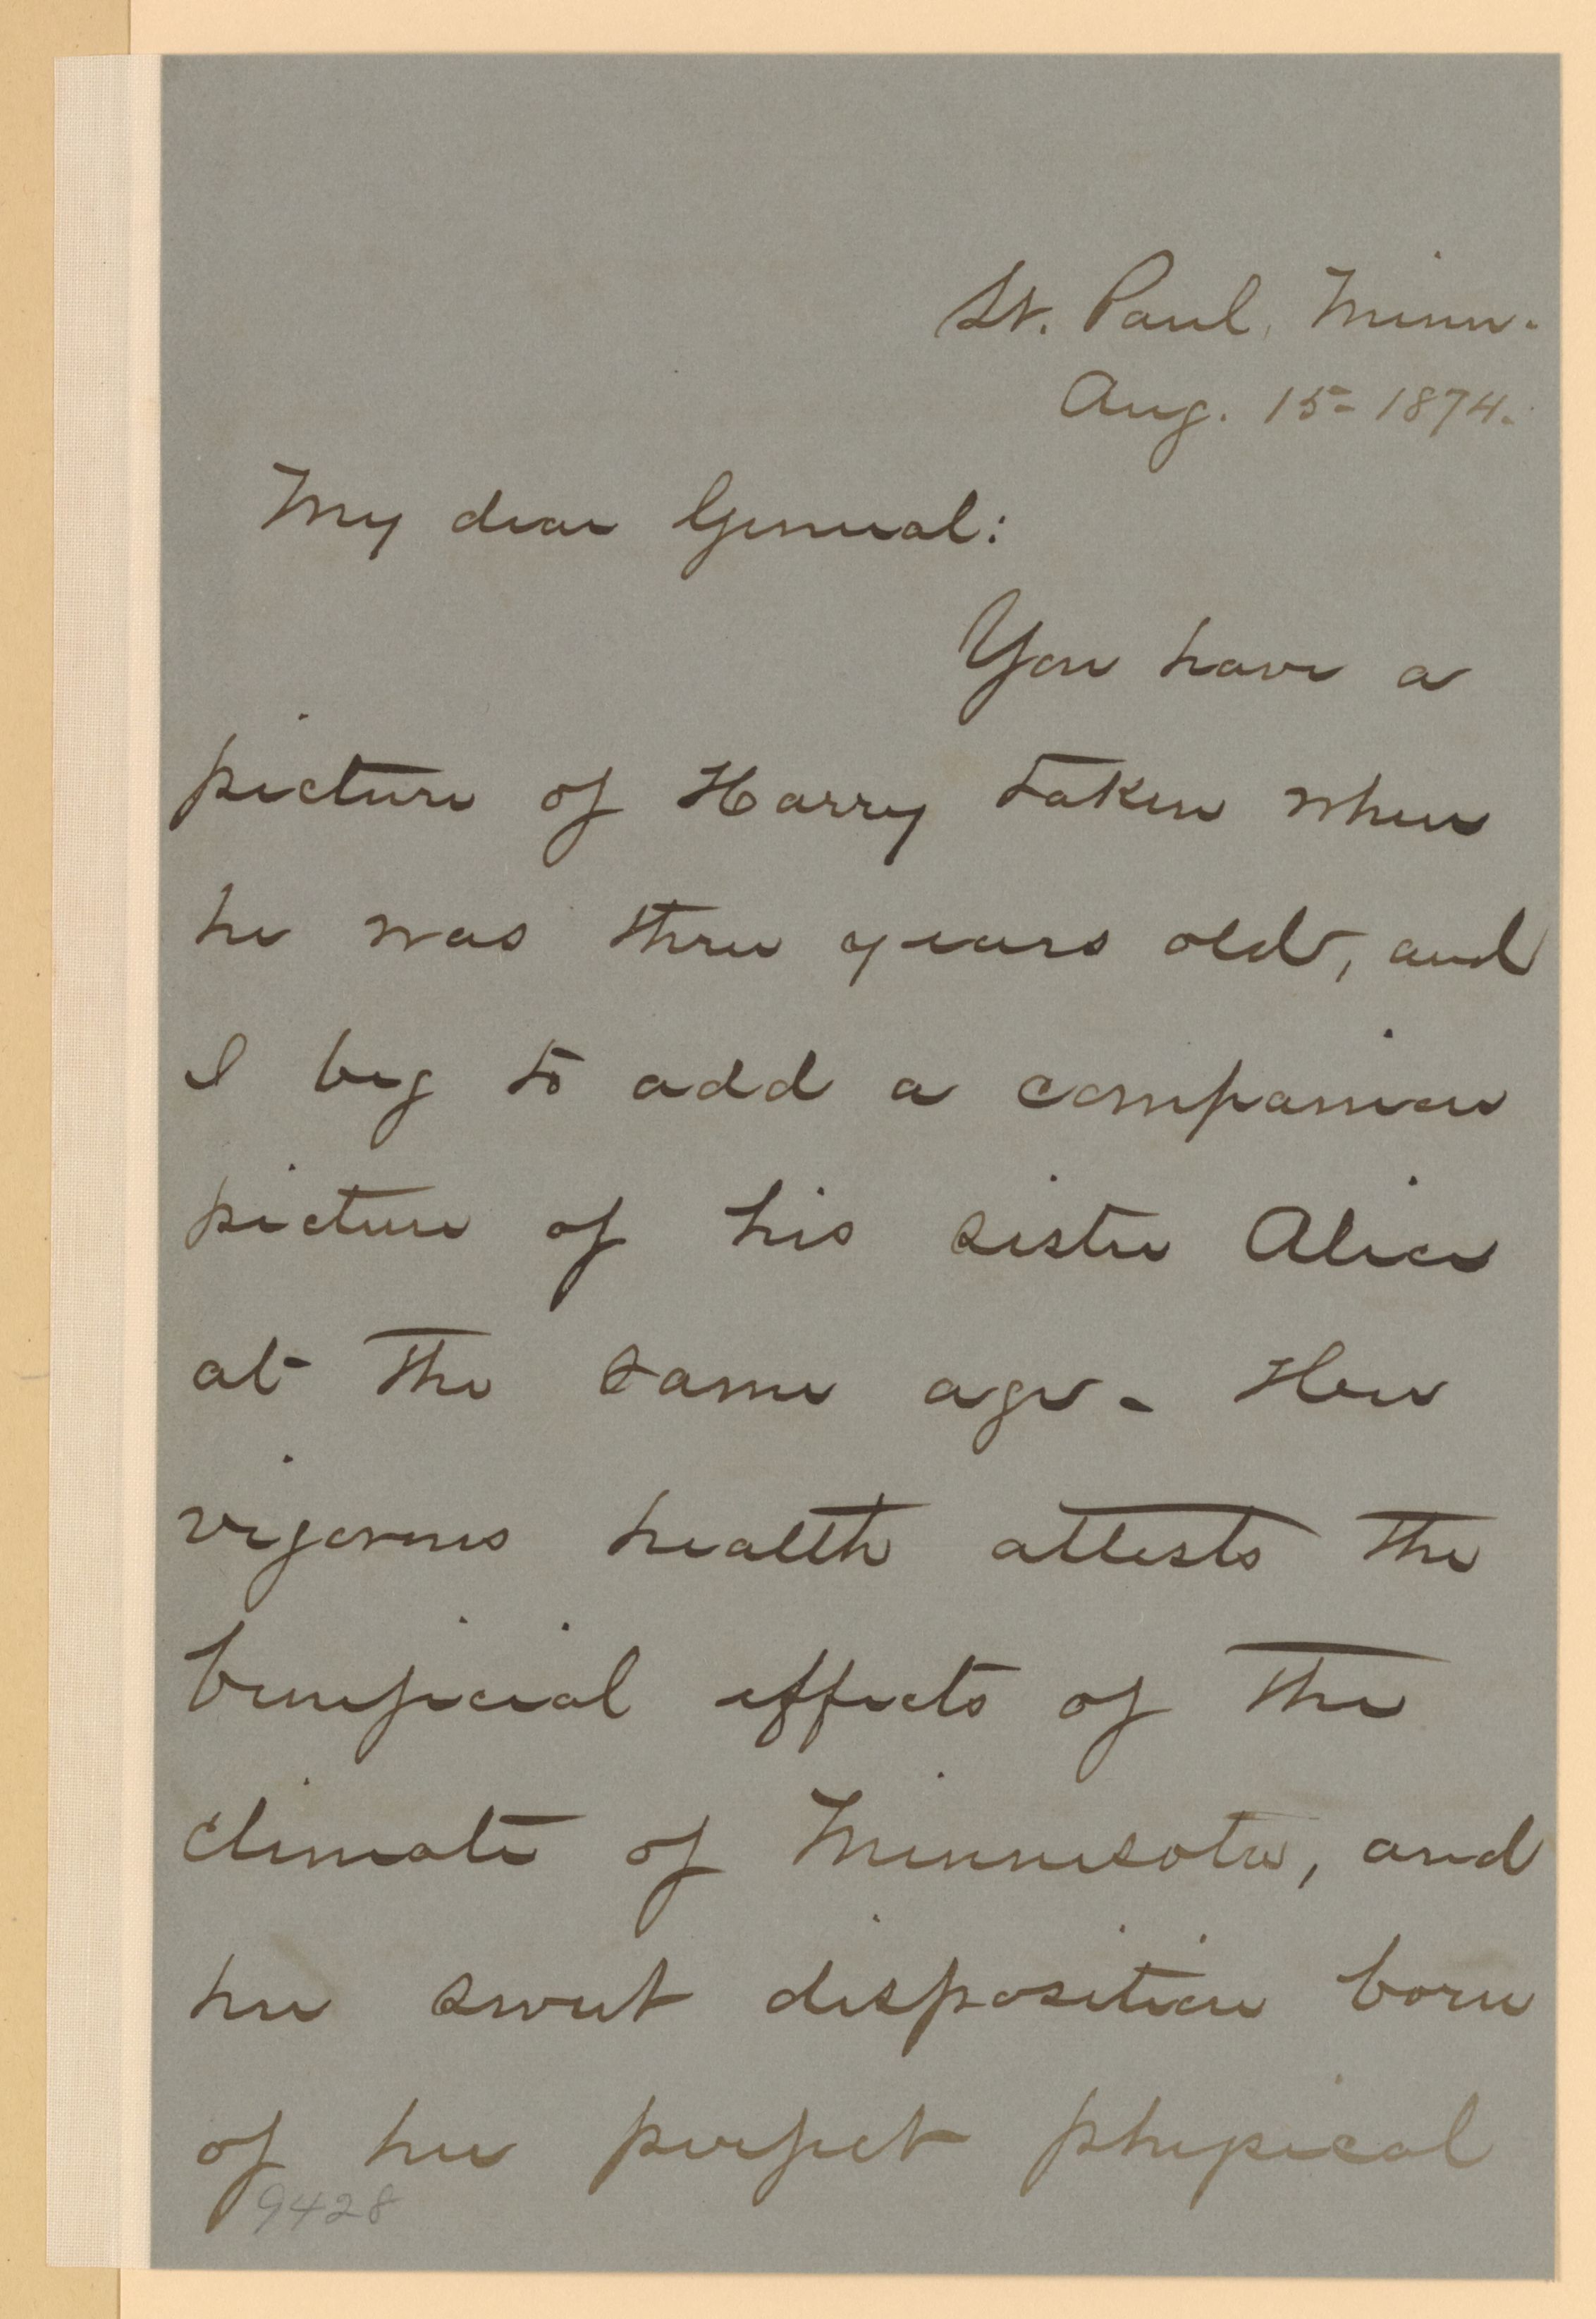 St. Paul, Minn.
Aug. 15- 1874.
My dear General:
You have a
picture of Harry taken when
he was three years old, and
I beg to add a companion
picture of his sister Alice
at the same age. Her
vigorous health attests the
beneficial effects of the
climate of Minnesota, and
her sweet disposition born
of her perfect physical
9428